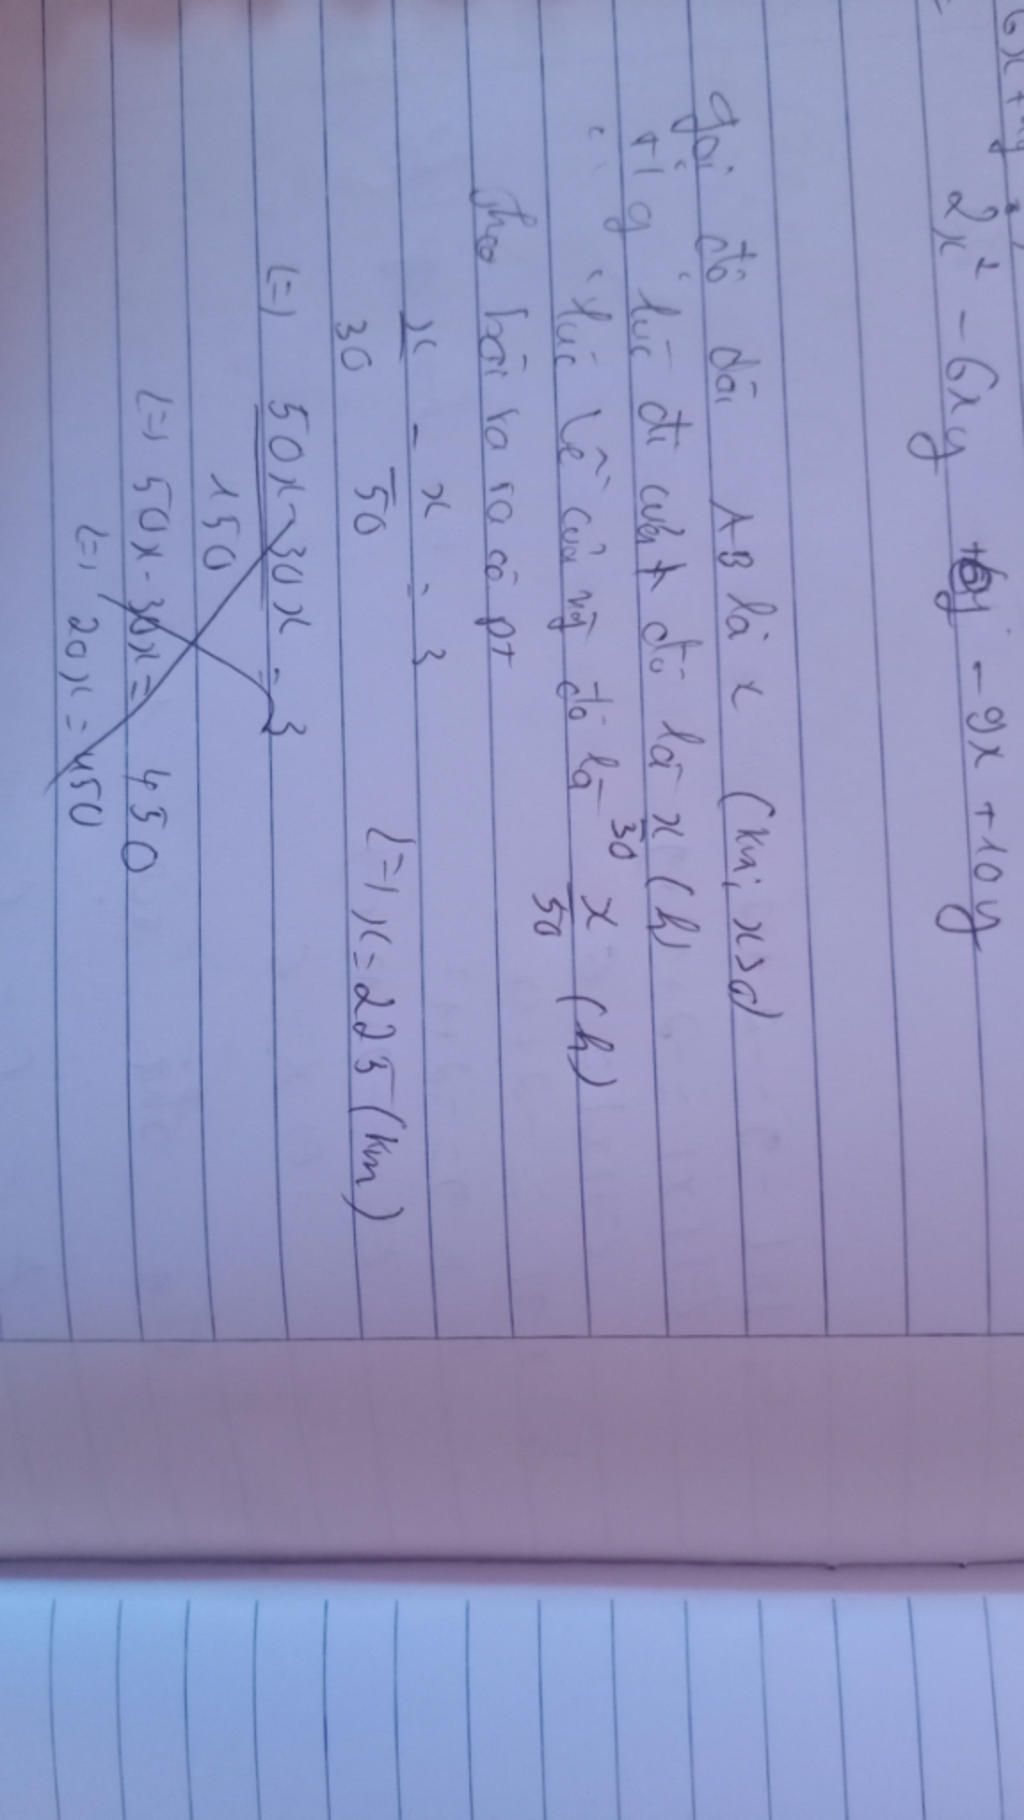 2x² - 6xy - 9x + 10y
gọi độ dài AB là x (km; x>0)
+1 g lúc đi của đó là x/30 (h)
" " lúc về của ng đó là x/50 (h)
theo bài ra ta có pt
x/30 - x/50 = 3
<=> x = 225 (km)
<=> 50x - 30x / 150 = 3
<=> 50x - 30x = 450
<=> 20x = 450